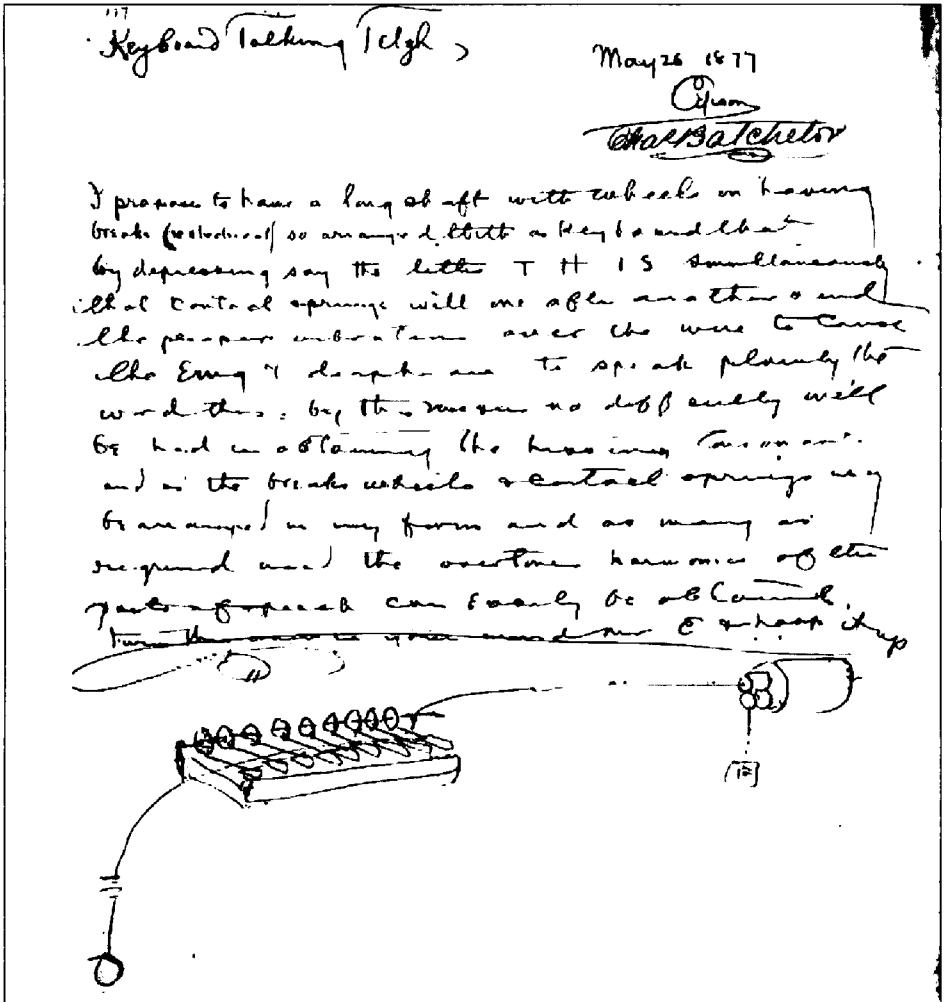 Keyboard Talking Telgh,
May 26 1877
Edison
Chas Batchelor
I propose to have a long shaft with wheels on having
breaks so arranged with a keyboard that
by depressing say the letters T H I S simultaneously
that contact springs will one after another send
the proper vibrations over the wire to cause
the Emg & diaphragm to speak plainly the
word this, by this means no difficulty will
be had in obtaining the hissing consonants
and as the breaks wheels & contact springs may
be arranged in any form and as many as
required used the overtones harmonics of the
parts of speech can easily be obtained.